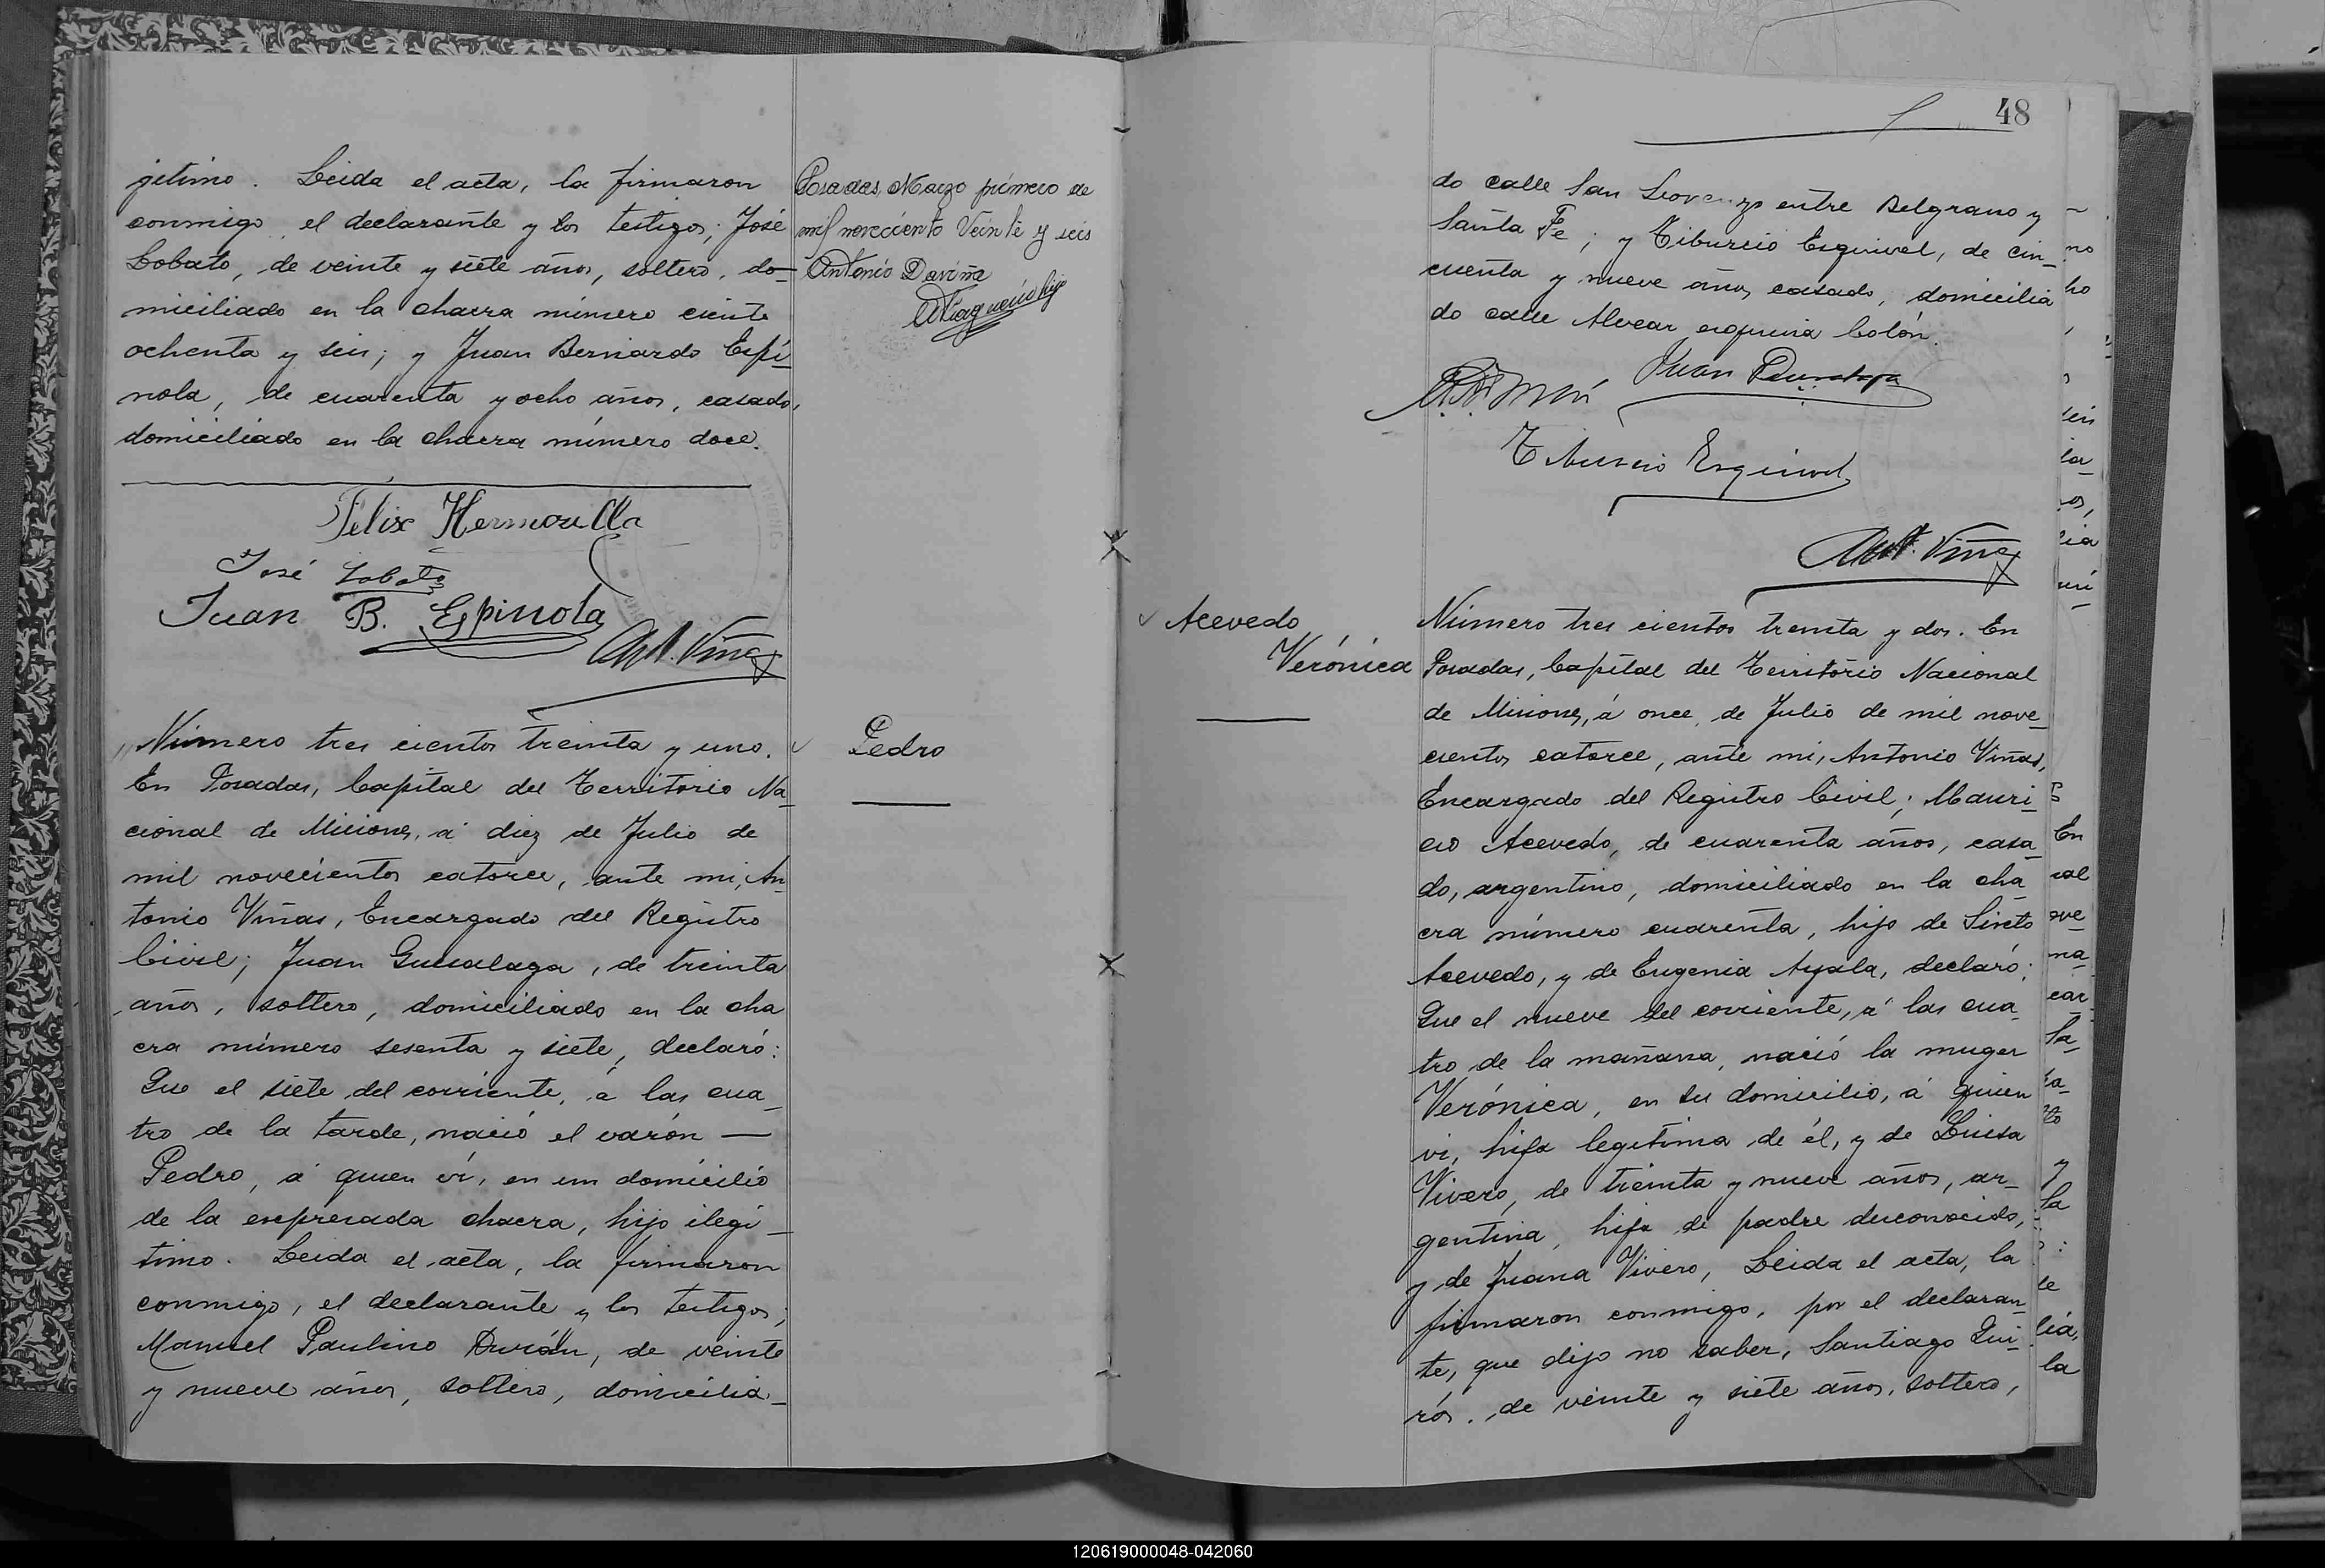 gitimo. Leida el acta, la firmaron
conmigo, el declarante y los testigos; José
Lobato, de veinte y siete años, soltero, do-
miciliado en la chacra número ciento
ochenta y seis; y Juan Bernardo Espí-
nola, de cuarenta y ocho años, casado,
domiciliado en la chacra número doce.
Felix Hermosilla
José Lobato
Juan B. Espinola
Ant. Viñas
Posadas, Marzo primero de
mil noveciento Veinte y seis
Antonio Daviña
Número tres cientos treinta y uno.
Pedro
En Posadas, Capital del Territorio Na-
cional de Misiones, á diez de Julio de
mil novecientos catorce, ante mi, An-
tonio Viñas, Encargado del Registro
Civil; Juan, de treinta
años, soltero, domiciliado en la cha
cra número sesenta y siete, declaró:
Que el siete del corriente, á las cua-
tro de la tarde, nació el varón —
Pedro, á quien ví, en un domicilio
de la expresada chacra, hijo ilegí-
timo. Leida el acta, la firmaron
conmigo, el declarante y los testigos;
Manuel Paulino Durán, de veinte
y nueve años, soltero, domicilia-
48
do calle San Lorenzo entre Belgrano y
Santa Fe; y Tiburcio Esquivel, de cin-
cuenta y nueve años, casado, domicilia
do calle Alvear esquina Colón.
Juan
Tiburcio Esquivel
Ant. Viñas
Acevedo
Verónica
Número tres cientos treinta y dos. En
Posadas, Capital del Territorio Nacional
de Misiones, á once de Julio de mil nove-
cientos catorce, ante mi, Antonio Viñas,
Encargado del Registro Civil; Mauri-
cio Acevedo, de cuarenta años, casa-
do, argentino, domiciliado en la cha-
cra número cuarenta, hijo de Sixto
Acevedo, y de Eugenia Ayala, declaró:
Que el nueve del corriente, á las cua-
tro de la mañana, nació la muger
Verónica, en su domicilio, á quien
vi, hija legítima de él, y de Luisa
Vivero, de treinta y nueve años, ar-
gentina, hija de padre desconocido,
y de Juana Vivero, Leida el acta, la
firmaron conmigo, por el declaran-
te, que dijo no saber, Santiago Qui-
rós, de veinte y siete años, soltero,
120619000048-042060